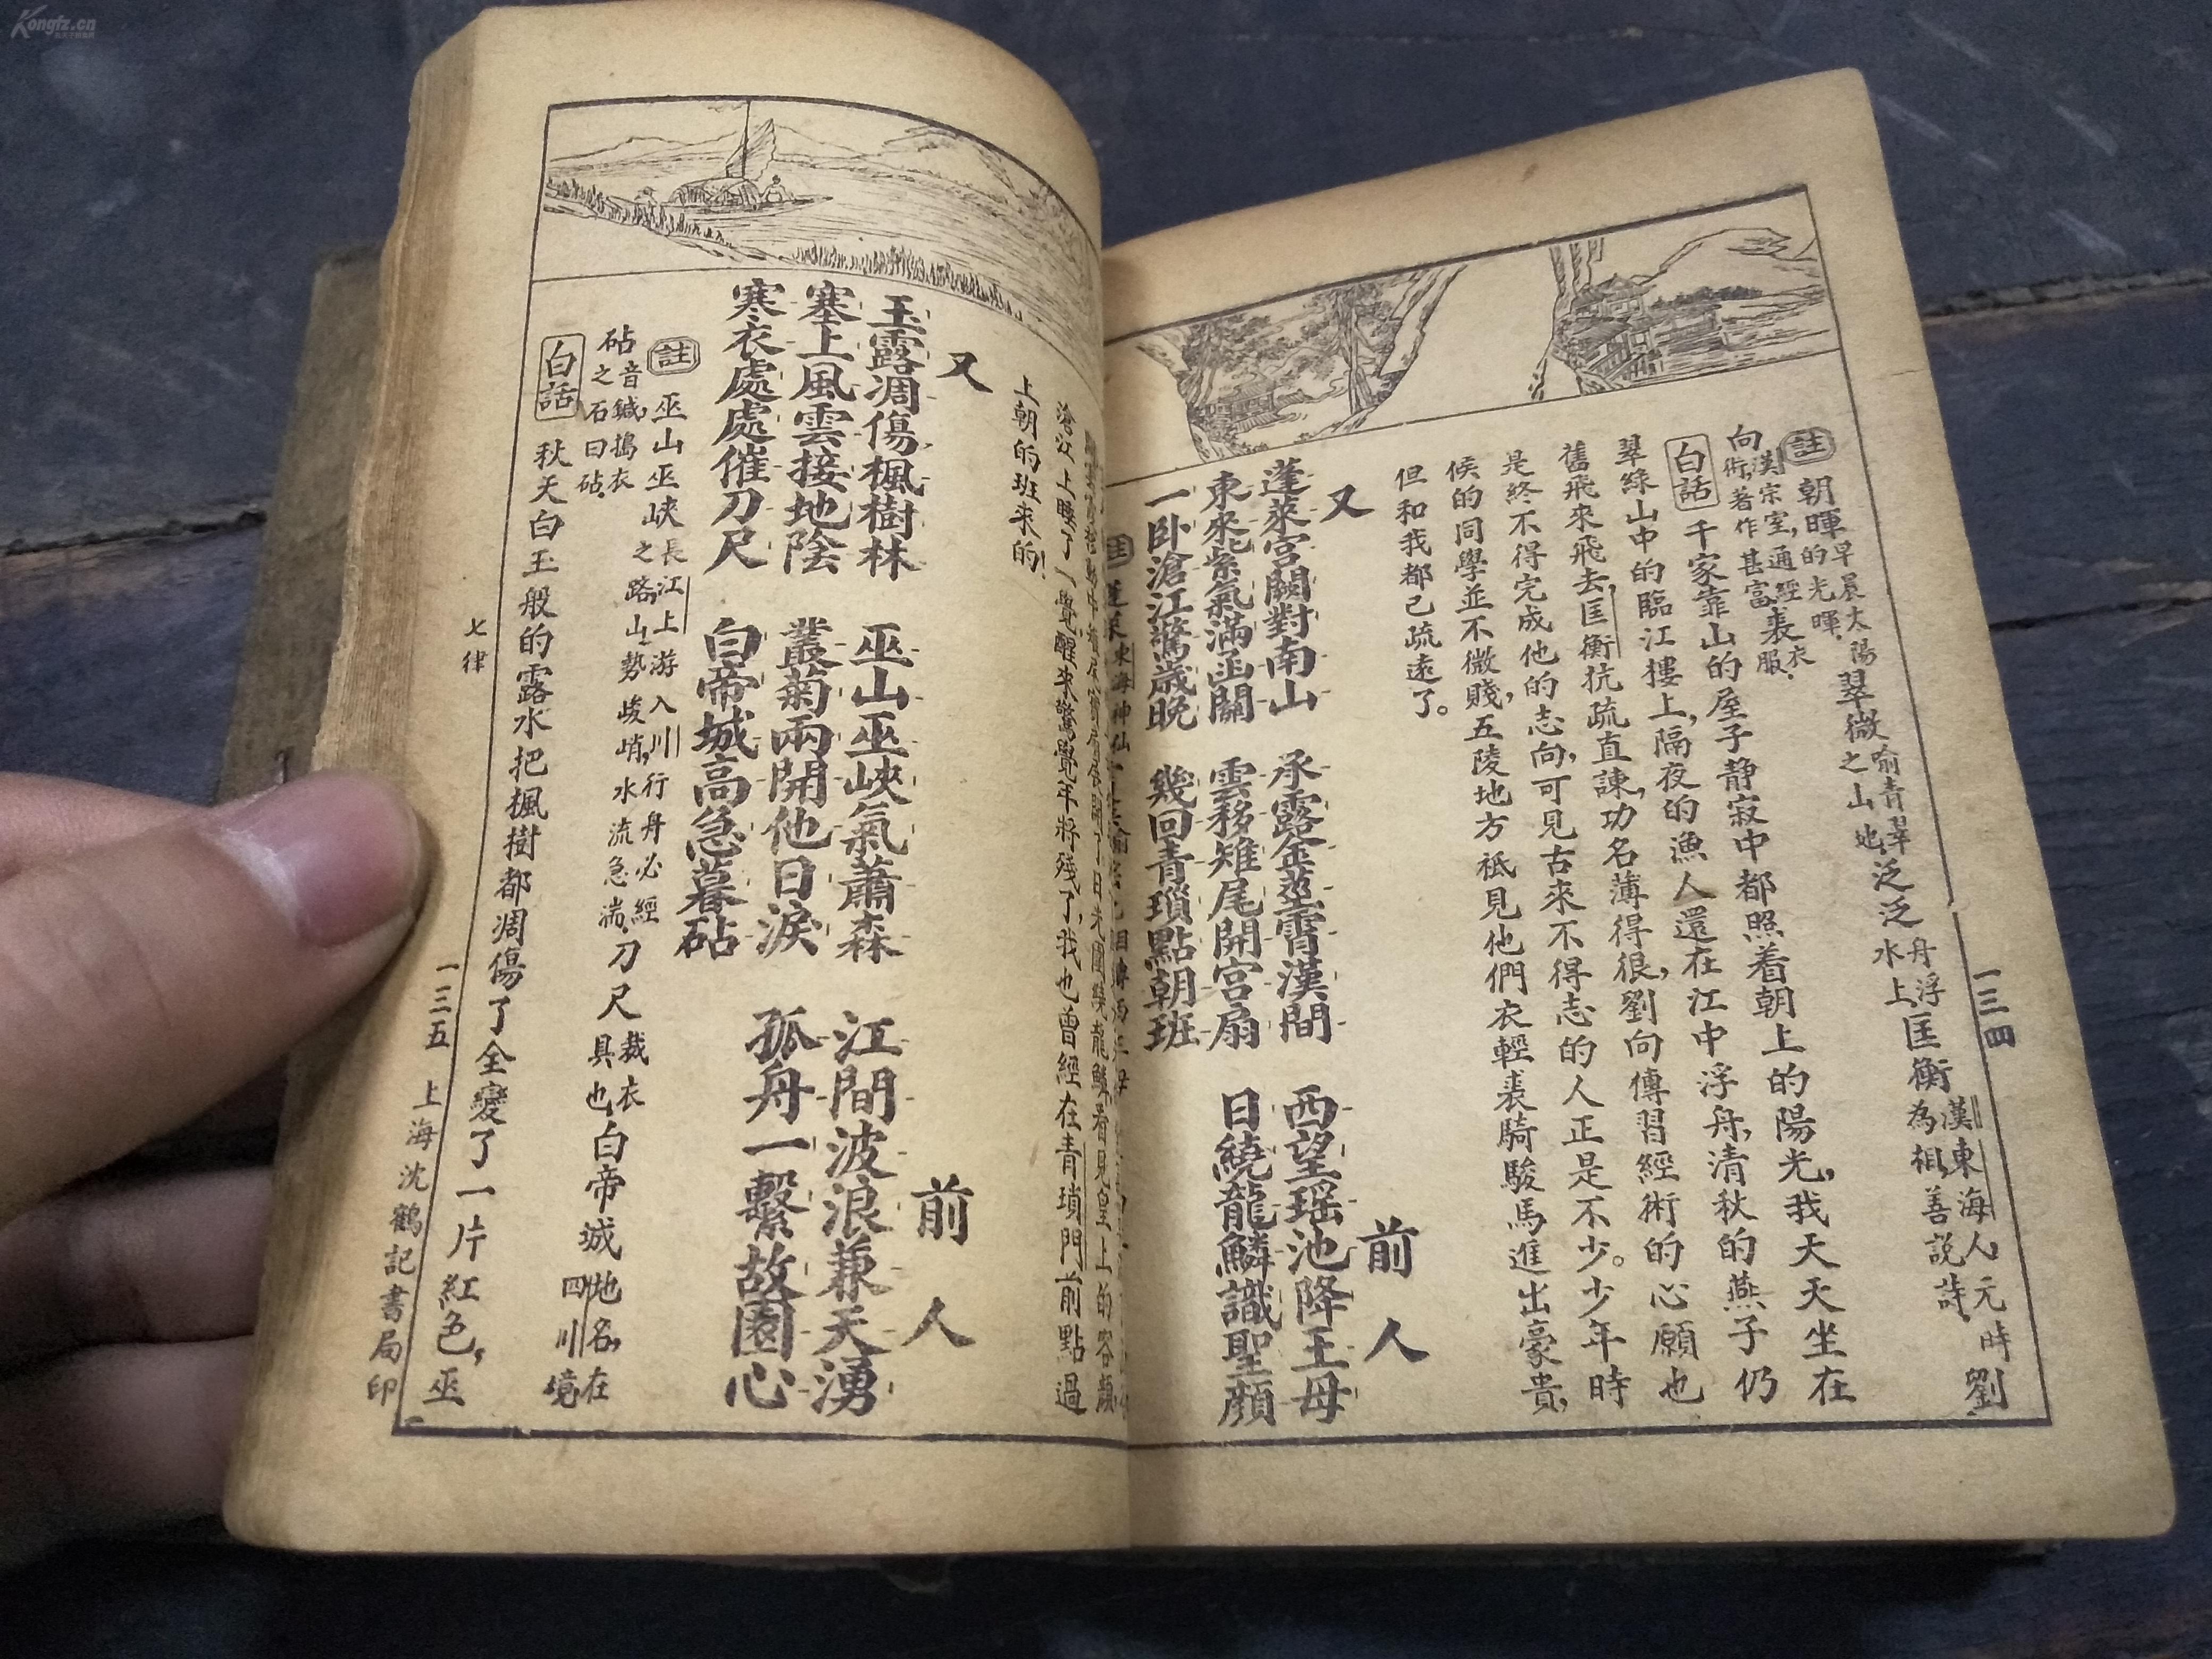 Kongfz.cn
一三四
註 朝暉 早晨太陽的光暉 翠微 喻青翠之山地 泛泛 舟浮水上 匡衡 漢東海人元時為相善說詩 劉
向 漢宗室,通經術,著作甚富 裘 衣服
白話 千家靠山的屋子靜寂中都照着朝上的陽光,我天天坐在
翠綠山中的臨江摟上,隔夜的漁人還在江中浮舟,清秋的燕子仍
舊飛來飛去,匡衡抗疏直諫,功名薄得很,劉向傳習經術的心願也
是終不得完成他的志向,可見古來不得志的人正是不少。少年時
候的同學並不微賤,五陵地方祗見他們衣輕裘騎駿馬進出豪貴,
但和我都已疏遠了。
又 前人
蓬萊宮闕對南山 承露金莖霄漢間 西望瑤池降王母
東來紫氣滿函關 雲移雉尾開宮扇 日繞龍鱗識聖顏
一卧滄江驚歲晚 幾回青瑣點朝班
滄江上睡了一覺醒來驚覺年將殘了,我也曾經在青瑣門前點過
上朝的班來的!
又 前人
玉露凋傷楓樹林 巫山巫峽氣蕭森 江間波浪兼天湧
塞上風雲接地陰 叢菊兩開他日淚 孤舟一繫故園心
寒衣處處催刀尺 白帝城高急暮砧
註 巫山巫峽 長江上游入川行舟必經之路,山勢峻峭,水流急湍 刀尺 裁衣具也 白帝城 地名,在四川境
砧 音鍼,搗衣之石曰砧
白話 秋天白玉般的露水把楓樹都凋傷了全變了一片紅色,巫
七律
一三五
上海沈鶴記書局印